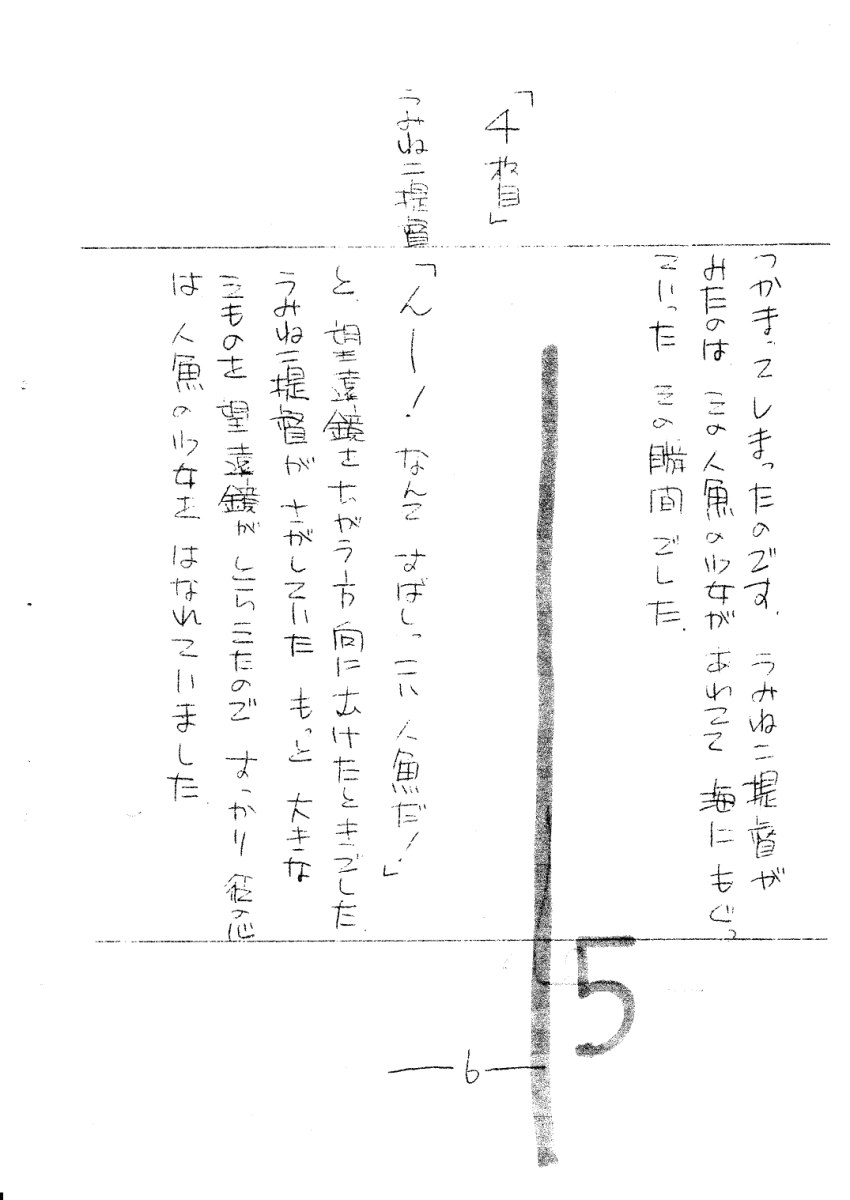 つかまってしまったのです. うみねこ提督が
みたのは この人魚の少女が あわてて 海にもぐっ
ていった この瞬間でした.
「4枚目」
うみねこ提督
「んー! なんて すばしっこい 人魚だ!」
と 望遠鏡をちがう方向にむけたときでした.
うみねこ提督が さがしていた もっと 大きな
ものを 望遠鏡が とらえたので すっかり
は 人魚の少女を はなれていました
5
6